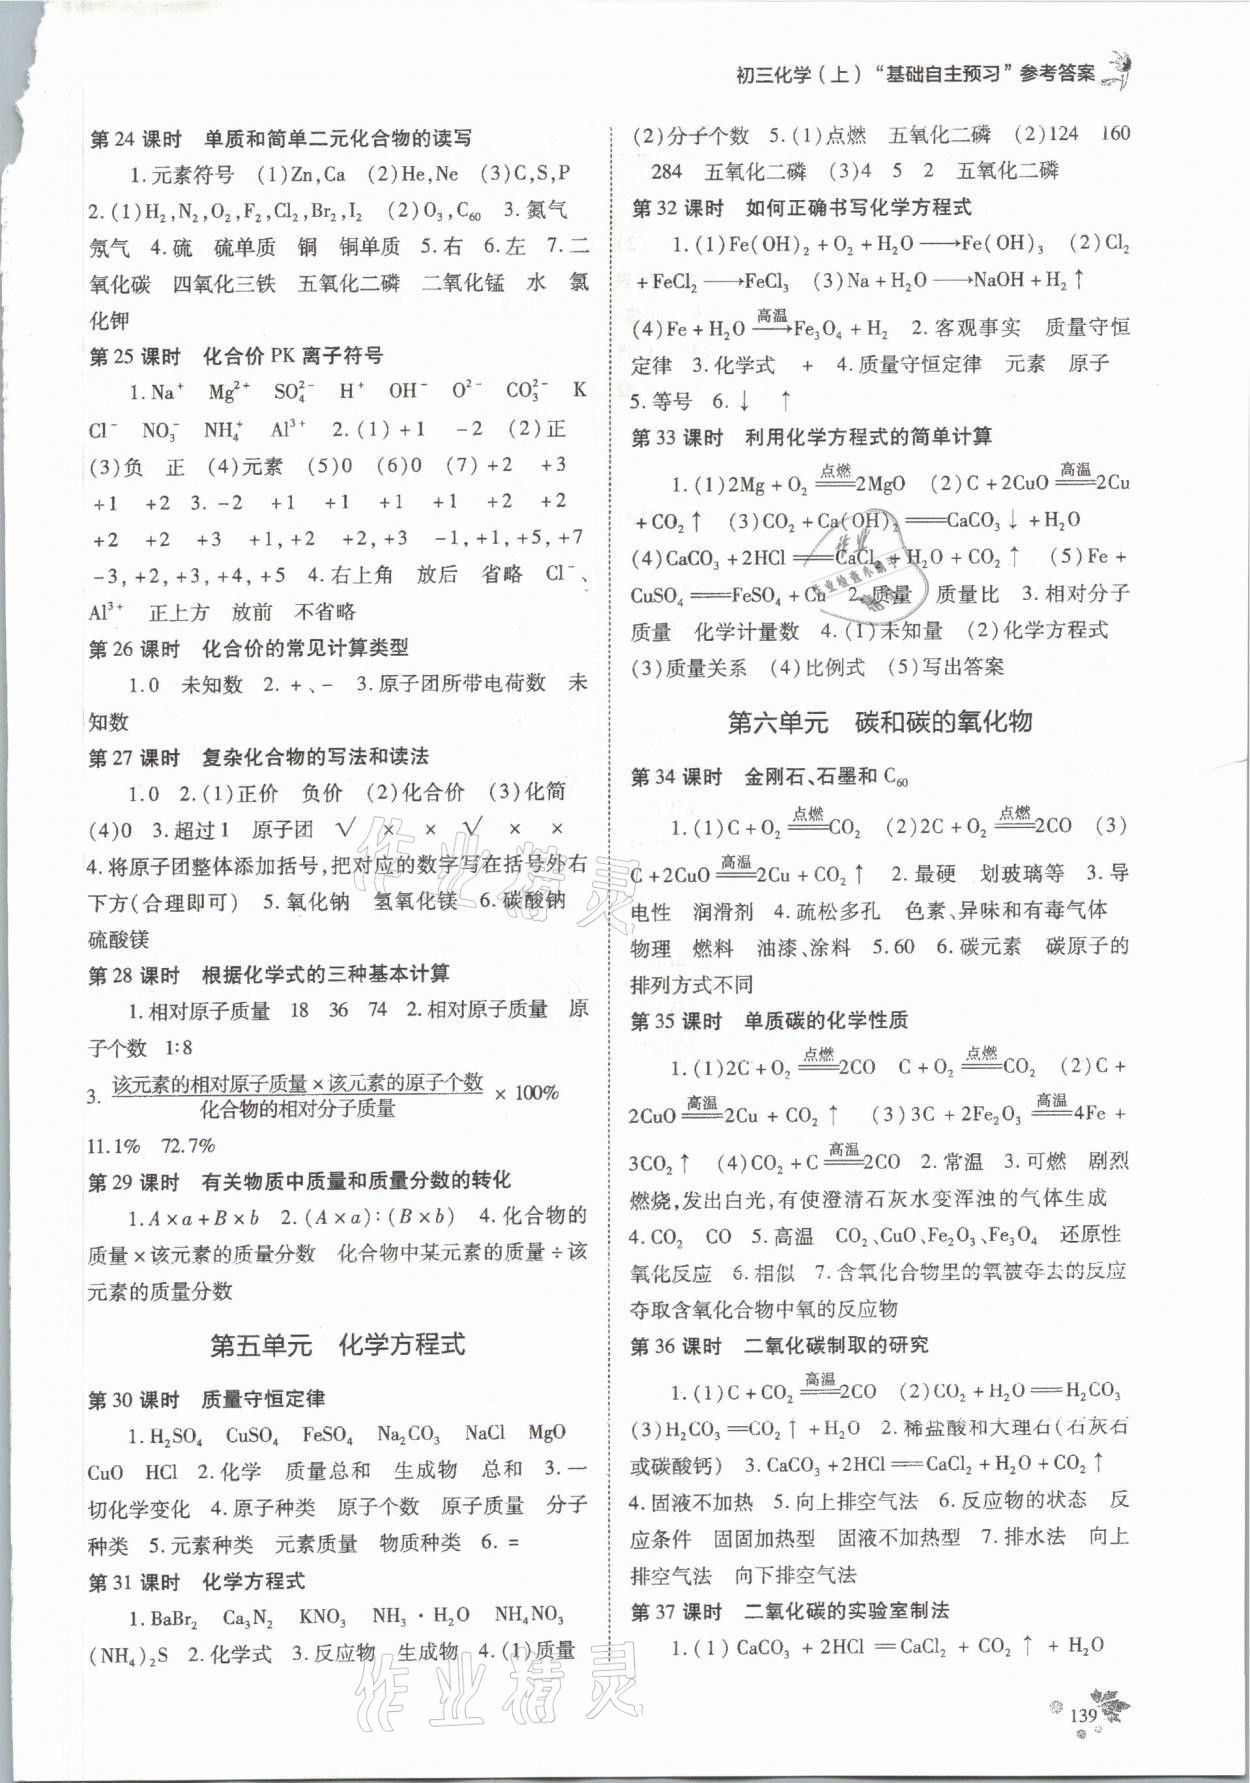 初三化学(上)“基础自主预习”参考答案
第24课时　单质和简单二元化合物的读写
1.元素符号　(1)Zn,Ca　(2)He,Ne　(3)C,S,P
2.(1)H₂,N₂,O₂,F₂,Cl₂,Br₂,I₂　(2)O₃,C₆₀　3.氮气
氖气　4.硫　硫单质　铜　铜单质　5.右　6.左　7.二
氧化碳　四氧化三铁　五氧化二磷　二氧化锰　水　氯
化钾
第25课时　化合价PK离子符号
1.Na⁺　Mg²⁺　SO₄²⁻　H⁺　OH⁻　O²⁻　CO₃²⁻　K
Cl⁻　NO₃⁻　NH₄⁺　Al³⁺　2.(1)+1　-2　(2)正
(3)负　正　(4)元素　(5)0　(6)0　(7)+2　+3
+1　+2　3.-2　+1　+1　+1　+1　+2　+2
+2　+2　+3　+1,+2　+2,+3　-1,+1,+5,+7
-3,+2,+3,+4,+5　4.右上角　放后　省略　Cl⁻、
Al³⁺　正上方　放前　不省略
第26课时　化合价的常见计算类型
1.0　未知数　2.+、-　3.原子团所带电荷数　未
知数
第27课时　复杂化合物的写法和读法
1.0　2.(1)正价　负价　(2)化合价　(3)化简
(4)0　3.超过1　原子团　√　×　×　√　×　×
4.将原子团整体添加括号,把对应的数字写在括号外右
下方(合理即可)　5.氧化钠　氢氧化镁　6.碳酸钠
硫酸镁
第28课时　根据化学式的三种基本计算
1.相对原子质量　18　36　74　2.相对原子质量　原
子个数　1:8
3. 该元素的相对原子质量×该元素的原子个数
化合物的相对分子质量 ×100%
11.1%　72.7%
第29课时　有关物质中质量和质量分数的转化
1.A×a+B×b　2.(A×a):(B×b)　4.化合物的
质量×该元素的质量分数　化合物中某元素的质量÷该
元素的质量分数
第五单元　化学方程式
第30课时　质量守恒定律
1.H₂SO₄　CuSO₄　FeSO₄　Na₂CO₃　NaCl　MgO
CuO　HCl　2.化学　质量总和　生成物　总和　3.一
切化学变化　4.原子种类　原子个数　原子质量　分子
种类　5.元素种类　元素质量　物质种类　6.=
第31课时　化学方程式
1.BaBr₂　Ca₃N₂　KNO₃　NH₃·H₂O　NH₄NO₃
(NH₄)₂S　2.化学式　3.反应物　生成物　4.(1)质量
(2)分子个数　5.(1)点燃　五氧化二磷　(2)124　160
284　五氧化二磷　(3)4　5　2　五氧化二磷
第32课时　如何正确书写化学方程式
1.(1)Fe(OH)₂+O₂+H₂O⟶Fe(OH)₃　(2)Cl₂
+FeCl₂⟶FeCl₃　(3)Na+H₂O⟶NaOH+H₂↑
(4)Fe+H₂O 高温⟶ Fe₃O₄+H₂　2.客观事实　质量守恒
定律　3.化学式　+　4.质量守恒定律　元素　原子
5.等号　6.↓　↑
第33课时　利用化学方程式的简单计算
1.(1)2Mg+O₂ 点燃══ 2MgO　(2)C+2CuO 高温══ 2Cu
+CO₂↑　(3)CO₂+Ca(OH)₂══CaCO₃↓+H₂O
(4)CaCO₃+2HCl══CaCl₂+H₂O+CO₂↑　(5)Fe+
CuSO₄══FeSO₄+Cu　2.质量　质量比　3.相对分子
质量　化学计量数　4.(1)未知量　(2)化学方程式
(3)质量关系　(4)比例式　(5)写出答案
第六单元　碳和碳的氧化物
第34课时　金刚石、石墨和C₆₀
1.(1)C+O₂ 点燃══ CO₂　(2)2C+O₂ 点燃══ 2CO　(3)
C+2CuO 高温══ 2Cu+CO₂↑　2.最硬　划玻璃等　3.导
电性　润滑剂　4.疏松多孔　色素、异味和有毒气体
物理　燃料　油漆、涂料　5.60　6.碳元素　碳原子的
排列方式不同
第35课时　单质碳的化学性质
1.(1)2C+O₂ 点燃══ 2CO　C+O₂ 点燃══ CO₂　(2)C+
2CuO 高温══ 2Cu+CO₂↑　(3)3C+2Fe₂O₃ 高温══ 4Fe+
3CO₂↑　(4)CO₂+C 高温══ 2CO　2.常温　3.可燃　剧烈
燃烧,发出白光,有使澄清石灰水变浑浊的气体生成
4.CO₂　CO　5.高温　CO₂、CuO、Fe₂O₃、Fe₃O₄　还原性
氧化反应　6.相似　7.含氧化合物里的氧被夺去的反应
夺取含氧化合物中氧的反应物
第36课时　二氧化碳制取的研究
1.(1)C+CO₂ 高温══ 2CO　(2)CO₂+H₂O══H₂CO₃
(3)H₂CO₃══CO₂↑+H₂O　2.稀盐酸和大理石(石灰石
或碳酸钙)　3.CaCO₃+2HCl══CaCl₂+H₂O+CO₂↑
4.固液不加热　5.向上排空气法　6.反应物的状态　反
应条件　固固加热型　固液不加热型　7.排水法　向上
排空气法　向下排空气法
第37课时　二氧化碳的实验室制法
1.(1)CaCO₃+2HCl══CaCl₂+CO₂↑+H₂O
139
作业精灵
作业精灵
作业
作业检查小精灵